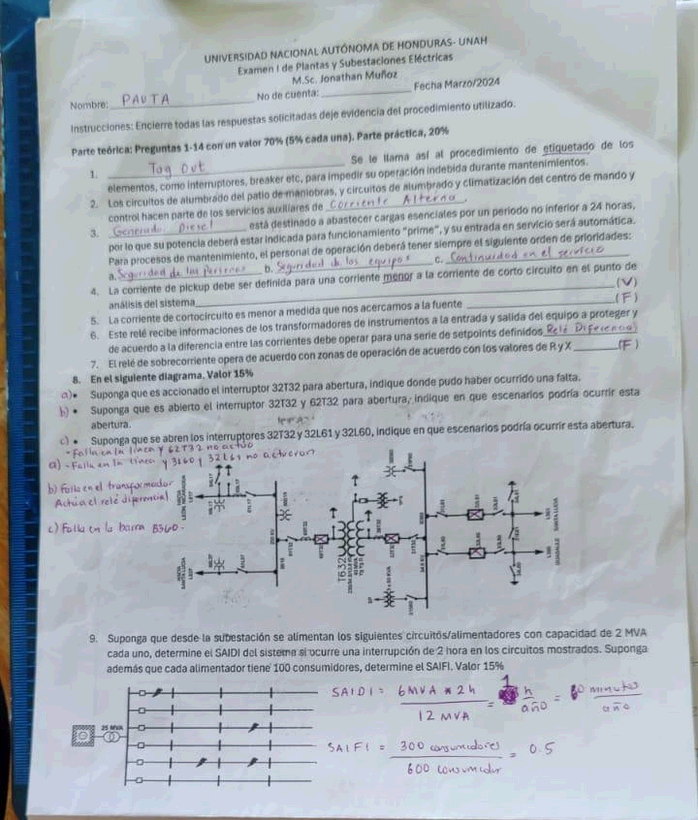 UNIVERSIDAD NACIONAL AUTÓNOMA DE HONDURAS- UNAH
Examen I de Plantas y Subestaciones Eléctricas
M.Sc. Jonathan Muñoz
Nombre: PAUTA No de cuenta: Fecha Marzo/2024
Instrucciones: Encierre todas las respuestas solicitadas deje evidencia del procedimiento utilizado.
Parte teórica: Preguntas 1-14 con un valor 70% (5% cada una). Parte práctica, 20%
1. Tag Out Se le llama así al procedimiento de etiquetado de los
elementos, como interruptores, breaker etc, para impedir su operación indebida durante mantenimientos.
2. Los circuitos de alumbrado del patio de maniobras, y circuitos de alumbrado y climatización del centro de mando y
control hacen parte de los servicios auxiliares de Corriente Alterna.
3. Generador Diesel está destinado a abastecer cargas esenciales por un periodo no inferior a 24 horas,
por lo que su potencia deberá estar indicada para funcionamiento "prime", y su entrada en servicio será automática.
Para procesos de mantenimiento, el personal de operación deberá tener siempre el siguiente orden de prioridades:
a. Seguridad de las personas b. Seguridad de los equipos c. Continuidad en el servicio
4. La corriente de pickup debe ser definida para una corriente menor a la corriente de corto circuito en el punto de
análisis del sistema (V)
5. La corriente de cortocircuito es menor a medida que nos acercamos a la fuente (F)
6. Este relé recibe informaciones de los transformadores de instrumentos a la entrada y salida del equipo a proteger y
de acuerdo a la diferencia entre las corrientes debe operar para una serie de setpoints definidos Relé Diferencial
7. El relé de sobrecorriente opera de acuerdo con zonas de operación de acuerdo con los valores de R y X (F)
8. En el siguiente diagrama. Valor 15%
a) • Suponga que es accionado el interruptor 32T32 para abertura, indique donde pudo haber ocurrido una falta.
b) • Suponga que es abierto el interruptor 32T32 y 62T32 para abertura, indique en que escenarios podría ocurrir esta
abertura.
c) • Suponga que se abren los interruptores 32T32 y 32L61 y 32L60, indique en que escenarios podría ocurrir esta abertura.
- Falla en la línea y 62T32 no actuó
a) - Falla en la línea y 3L60 y 32L61 no actuaron
b) Falla en el transformador
Actúa el relé diferencial
c) Falla en la barra B360.
T632
9. Suponga que desde la subestación se alimentan los siguientes circuitos/alimentadores con capacidad de 2 MVA
cada uno, determine el SAIDI del sistema si ocurre una interrupción de 2 hora en los circuitos mostrados. Suponga
además que cada alimentador tiene 100 consumidores, determine el SAIFI. Valor 15%
SAIDI = 6MVA * 2h / 12 MVA = 1 h/año = 60 minutos/año
25 MVA
SAIFI = 300 consumidores / 600 consumidor = 0.5